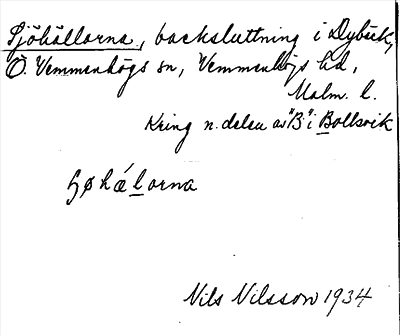 Sjöhällorna, backsluttning i Dybeck,
Ö. Vemmenhögs sn, Vemmenhögs hd,
Malm. l.
Kring n. delen av "B" i Bollsvik
ʃøhǽlorna
Nils Nilsson 1934